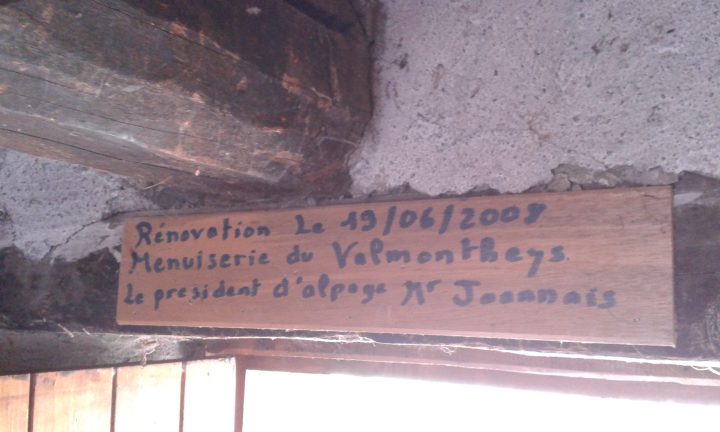 Rénovation Le 19/06/2008
Menuiserie du Valmontheys
Le president d'alpage Mr Jaannais